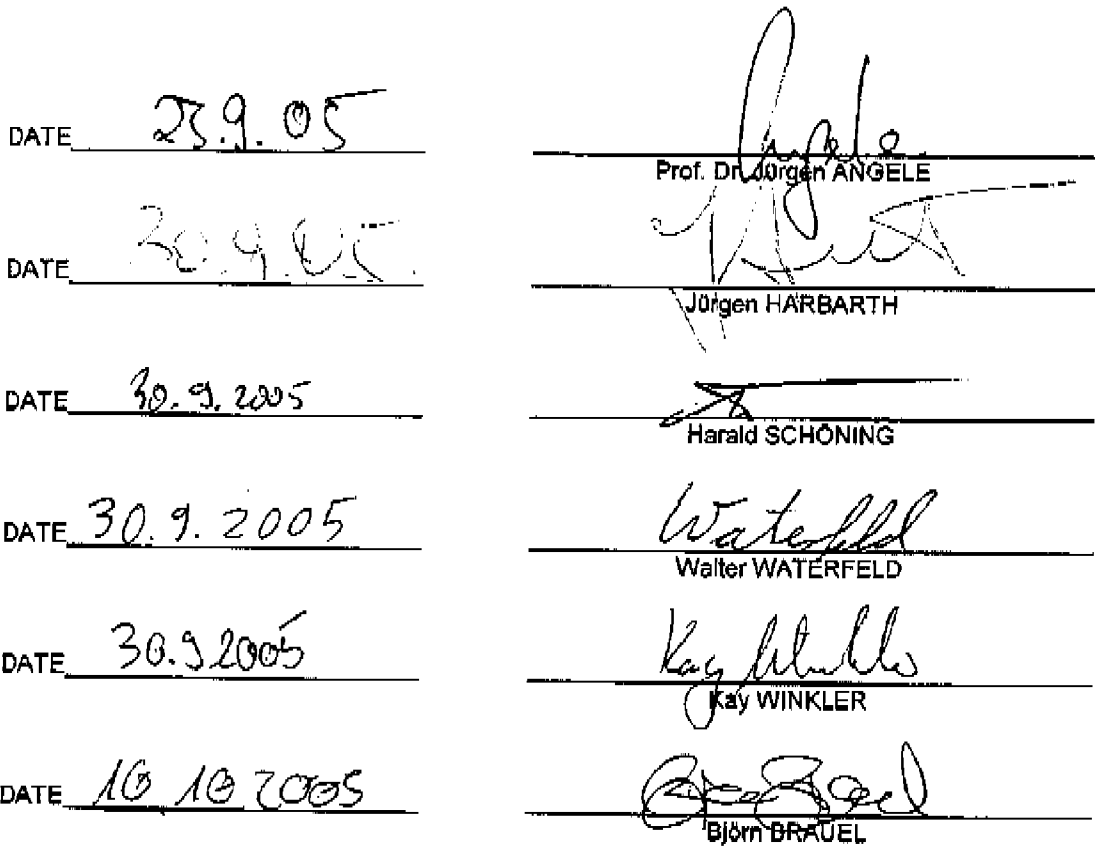 DATE 23.9.05
Angele
Prof. Dr. Jürgen ANGELE
DATE 30.9.05
Jürgen HARBARTH
DATE 30.9.2005
Harald SCHÖNING
DATE 30.9.2005
Waterfeld
Walter WATERFELD
DATE 30.9.2005
Kay Winkler
Kay WINKLER
DATE 10 10 2005
Björn BRAUEL